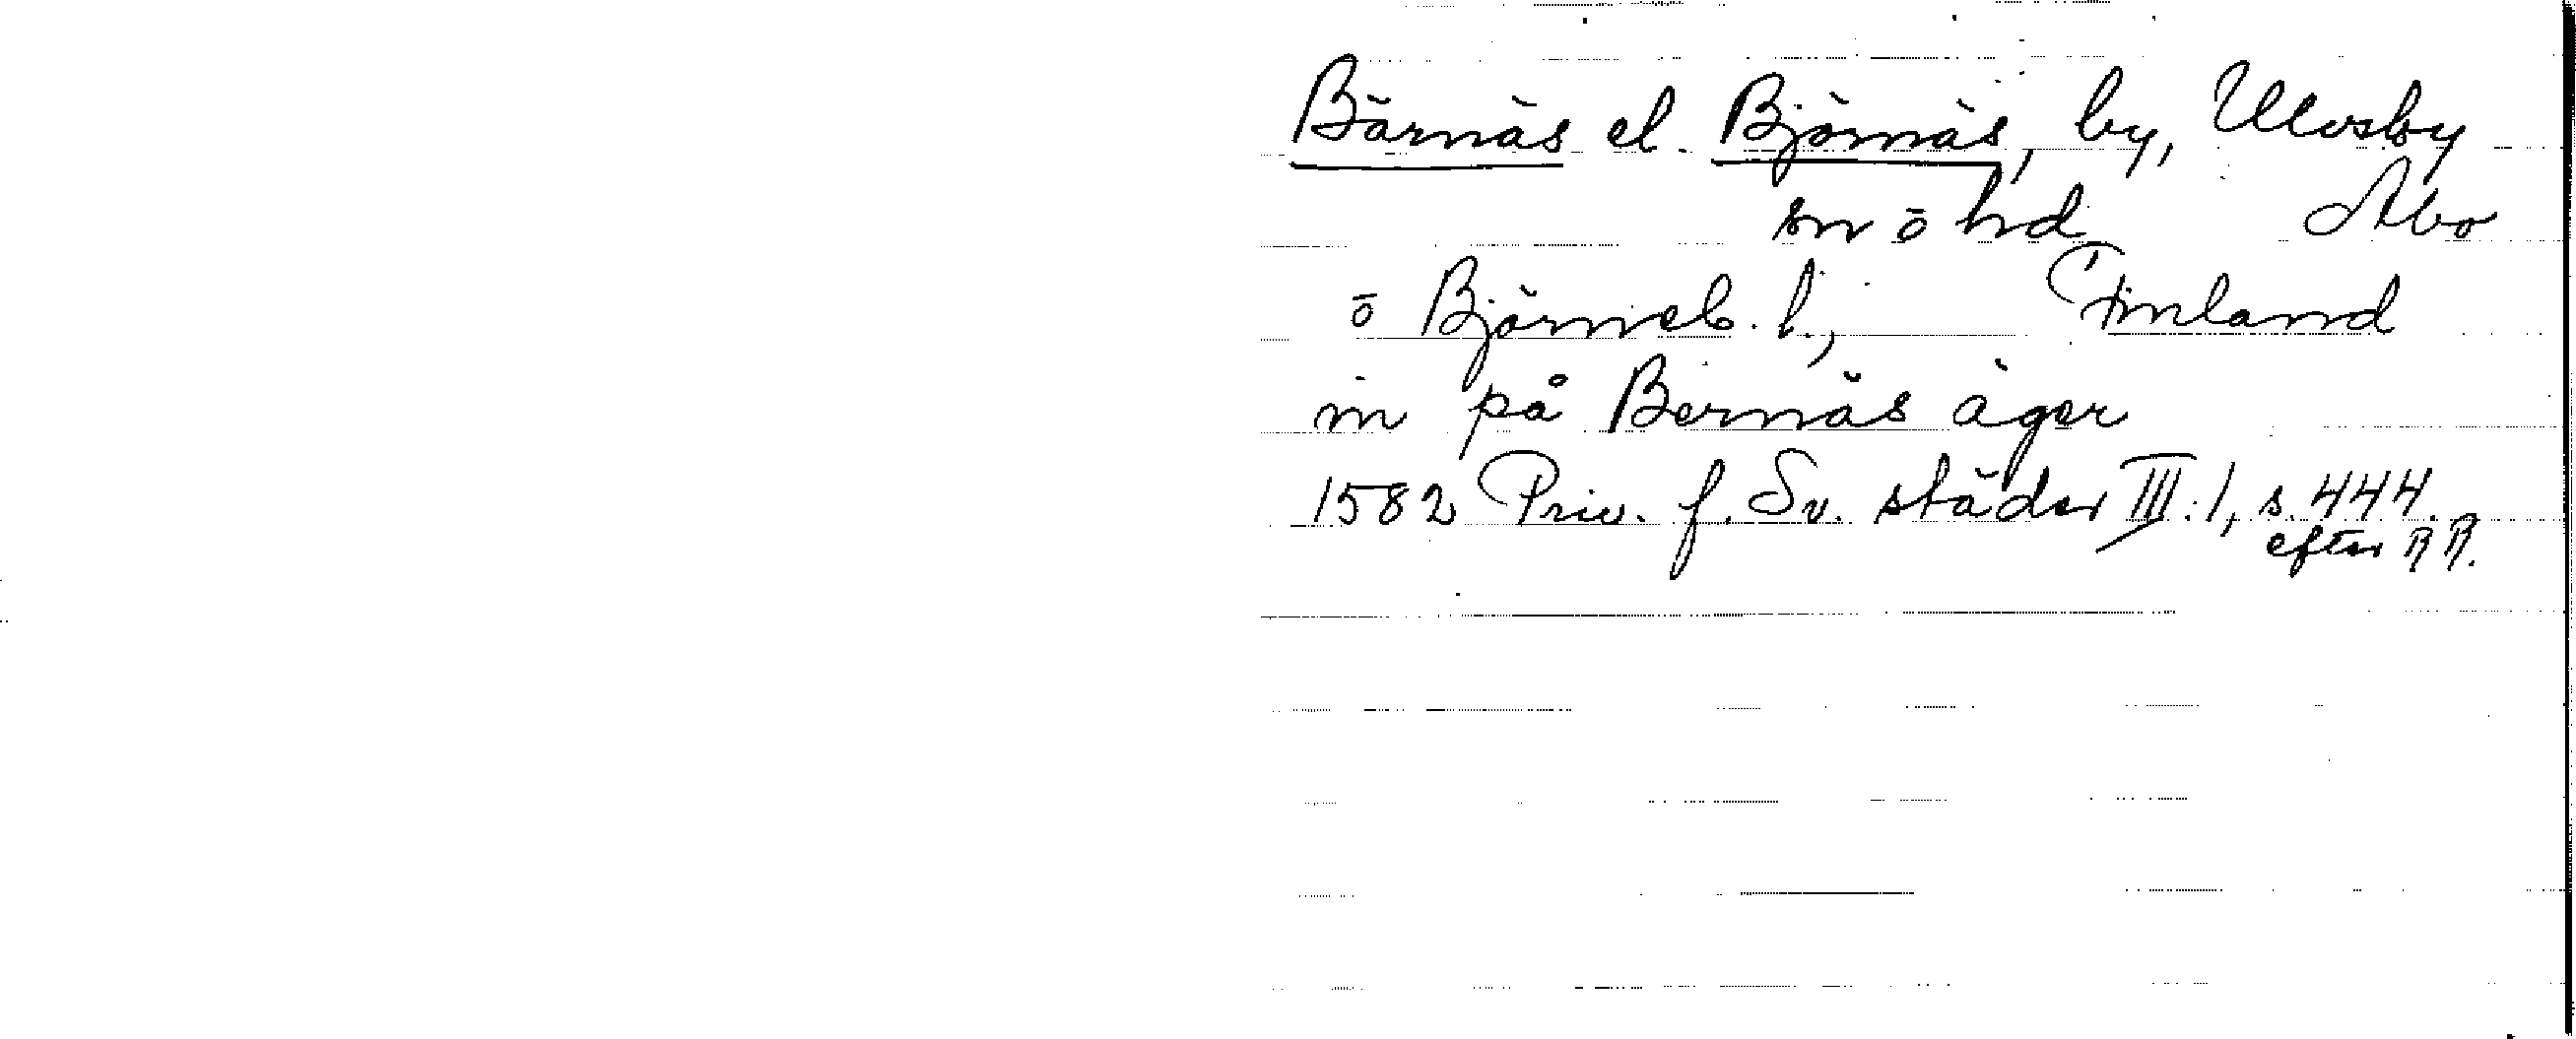 Bärnäs el. Björnäs, by, Ulvsby
sn ō hd Åbo
ō Björneb. l., Finland
in på Bernäs äger
1582 Priv. f. Sv. städer III:1, s. 444.
efter RR.